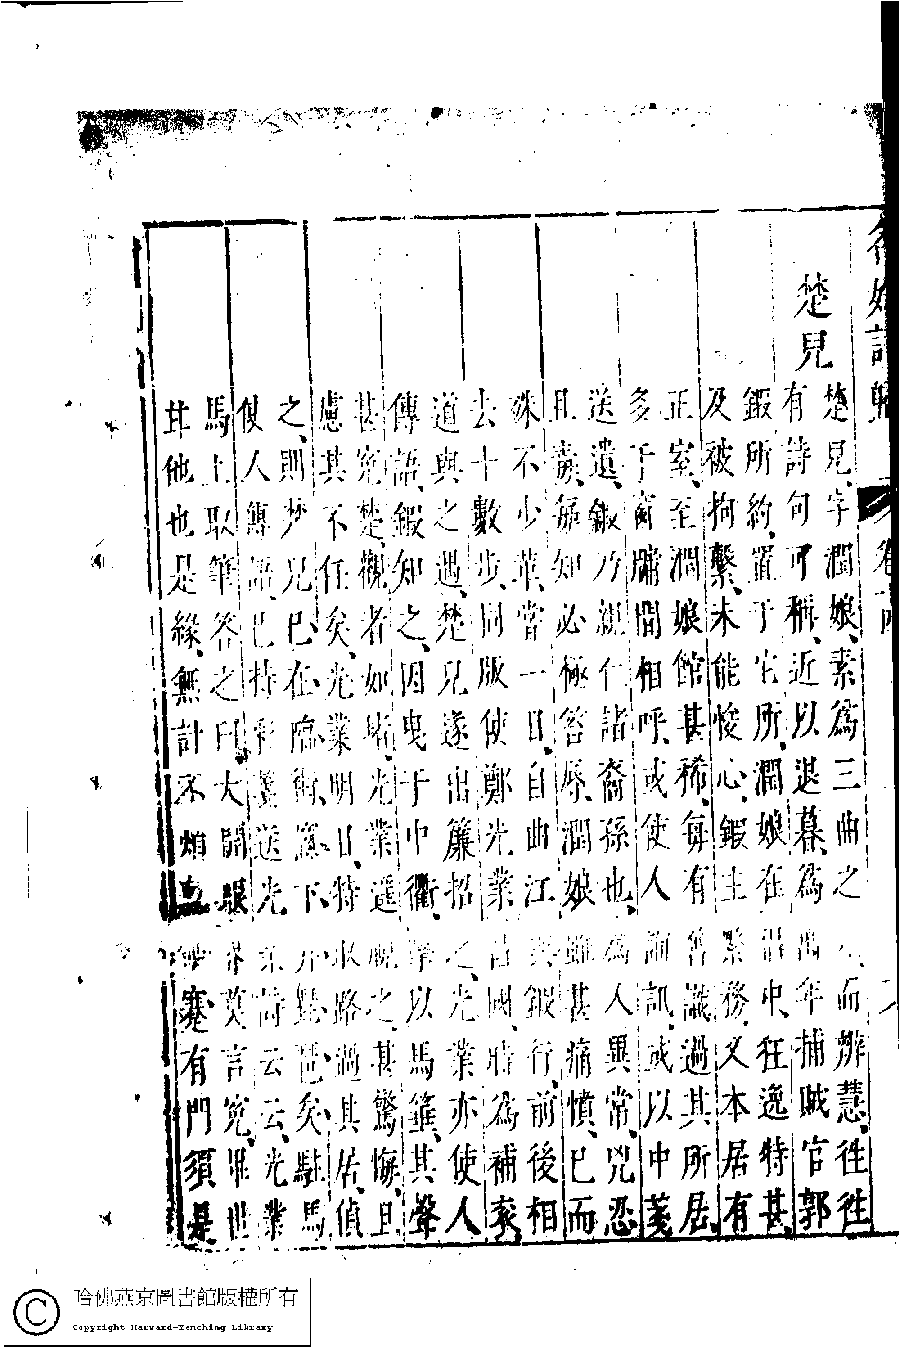 楚兒
楚兒、字潤娘、素爲三曲之尤、而辨慧、徃徃
有詩句可稱、近以退暮、爲萬年捕賊官郭
鍜所約、置于它所、潤娘在娼中、狂逸特甚、
及被拘繫、未能悛心、鍜主繁務、又本居有
正室、至潤娘館甚稀、每有舊識過其所居、
多于窗牖間相呼、或使人詢訊、或以巾箋
送遺、鍜乃親仁諸裔孫也、爲人異常、兇忍
且毒、每知必極笞辱、潤娘雖甚痛憤、已而
殊不少革、嘗一日、自曲江與鍜行、前後相
去十數步、同版使鄭光業昌國、時爲補衮、
道與之遇、楚兒遂出簾招之、光業亦使人
傳語、鍜知之、因曳于中衢、擊以馬箠、其聲
甚寃楚、觀者如堵、光業遥視之、甚驚悔、且
慮其不任矣、光業明日、特取路過其居、偵
之、則楚兒已在臨街窻下、弄琵琶矣、駐馬
使人傳語、已持彩箋送光業詩云云、光業
馬上取筆答之曰、大開眼界莫言寃、畢世
甘他也是緣、無計不煩乾偃蹇、有門須是
哈佛燕京圖書館版權所有
Copyright Harvard-Yenching Library